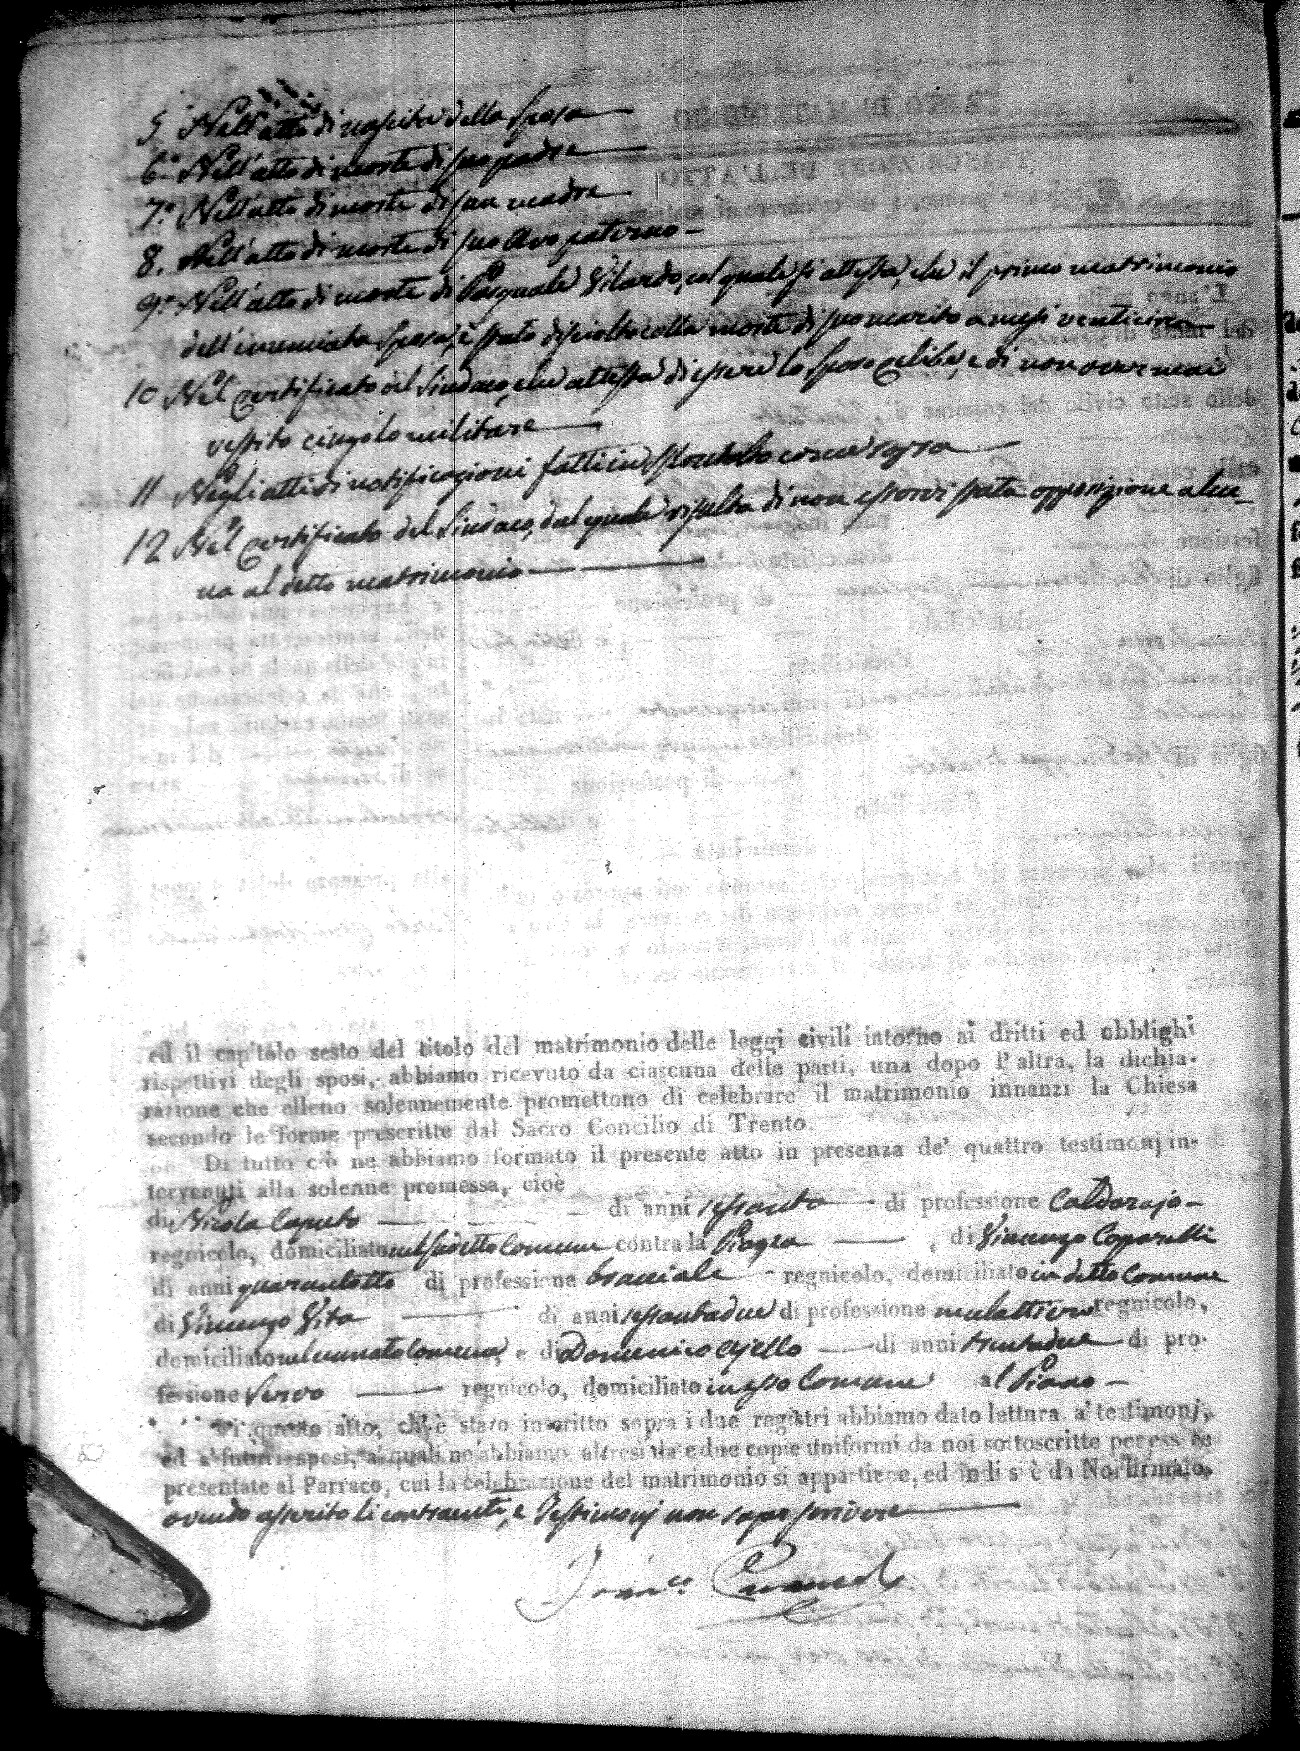 5.° Nell'atto di nascita della sposa
6.° Nell'atto di morte di suo padre
7.° Nell'atto di morte di sua madre
8. Nell'atto di morte di suo Avo paterno
9.° Nell'atto di morte di Pasquale Vilardo, col quale si attesta, che il primo matrimonio
dell'enunciata sposa, è stato disciolto colla morte di suo marito
10 Nel certificato del Sindaco, che attesta di essere lo sposo celibe, e di non aver mai
vestito cingolo militare
11 Negli atti di notificazioni fatti come sopra
12 Nel certificato del Sindaco, dal quale risulta di non esservi stata opposizione alcu-
na al detto matrimonio
ed il capitolo sesto del titolo del matrimonio delle leggi civili intorno ai dritti ed obblighi
rispettivi degli sposi, abbiamo ricevuto da ciascuna delle parti, una dopo l'altra, la dichia-
razione che elleno solennemente promettono di celebrare il matrimonio innanzi la Chiesa
secondo le forme prescritte dal Sacro Concilio di Trento.
Di tutto ciò ne abbiamo formato il presente atto in presenza de' quattro testimonj in-
tervenuti alla solenne promessa, cioè
di Nicola Caputo di anni sessanta di professione Caldorajo
regnicolo, domiciliato nel sudetto Comune contrada , di Vincenzo Caparelli
di anni quarantotto di professione bracciale regnicolo, domiciliato in detto Comune
di Vincenzo Vita di anni sessantadue di professione mulattiere regnicolo,
domiciliato nel cennato Comune, e di Domenico Ajello di anni trentadue di pro-
fessione Servo regnicolo, domiciliato in esso Comune al Piano
Di questo atto, ch'è stato inscritto sopra i due registri abbiamo dato lettura a' testimonj,
ed a' futuri sposi, a' quali ne abbiamo altresì date due copie uniformi da noi sottoscritte per essere
presentate al Parroco, cui la celebrazione del matrimonio si appartiene, ed indi s'è da Noi firmato,
avendo asserito li contraenti, e Testimonj non saper scrivere